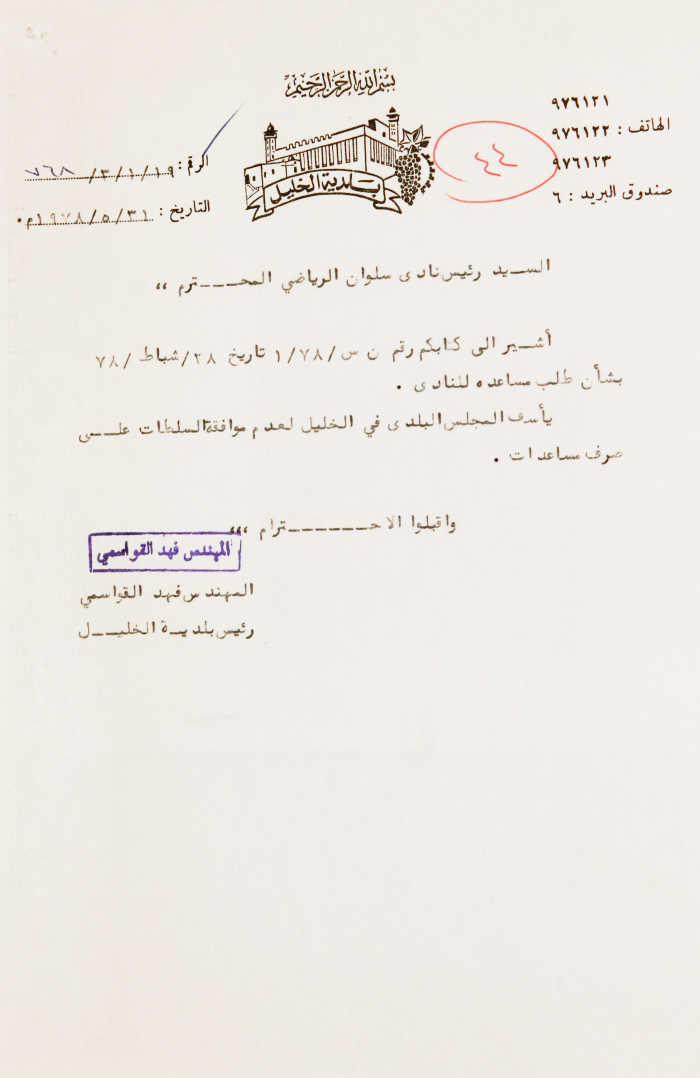 بسم الله الرحمن الرحيم
بلدية الخليل
٩٧٦١٢١
الهاتف : ٩٧٦١٢٢
٩٧٦١٢٣
صندوق البريد : ٦
٤٤
الرقم : ٣/١/١٩/ ٧٦٨
التاريخ : ١٩٧٨/٥/٣١م.
السـيد رئيس نادى سلوان الرياضي المحـــترم ،،
أشـير الى كتابكم رقم ن س/١/٧٨ تاريخ ٢٨/شباط /٧٨
بشأن طلب مساعده للنادى .
يأسف المجلس البلدى في الخليل لعدم موافقة السلطات علــى
صرف مساعدات .
واقبلوا الاحــــــترام ،،،
المهندس فهد القواسمي
المهندس فهد القواسمي
رئيس بلديـة الخليـل